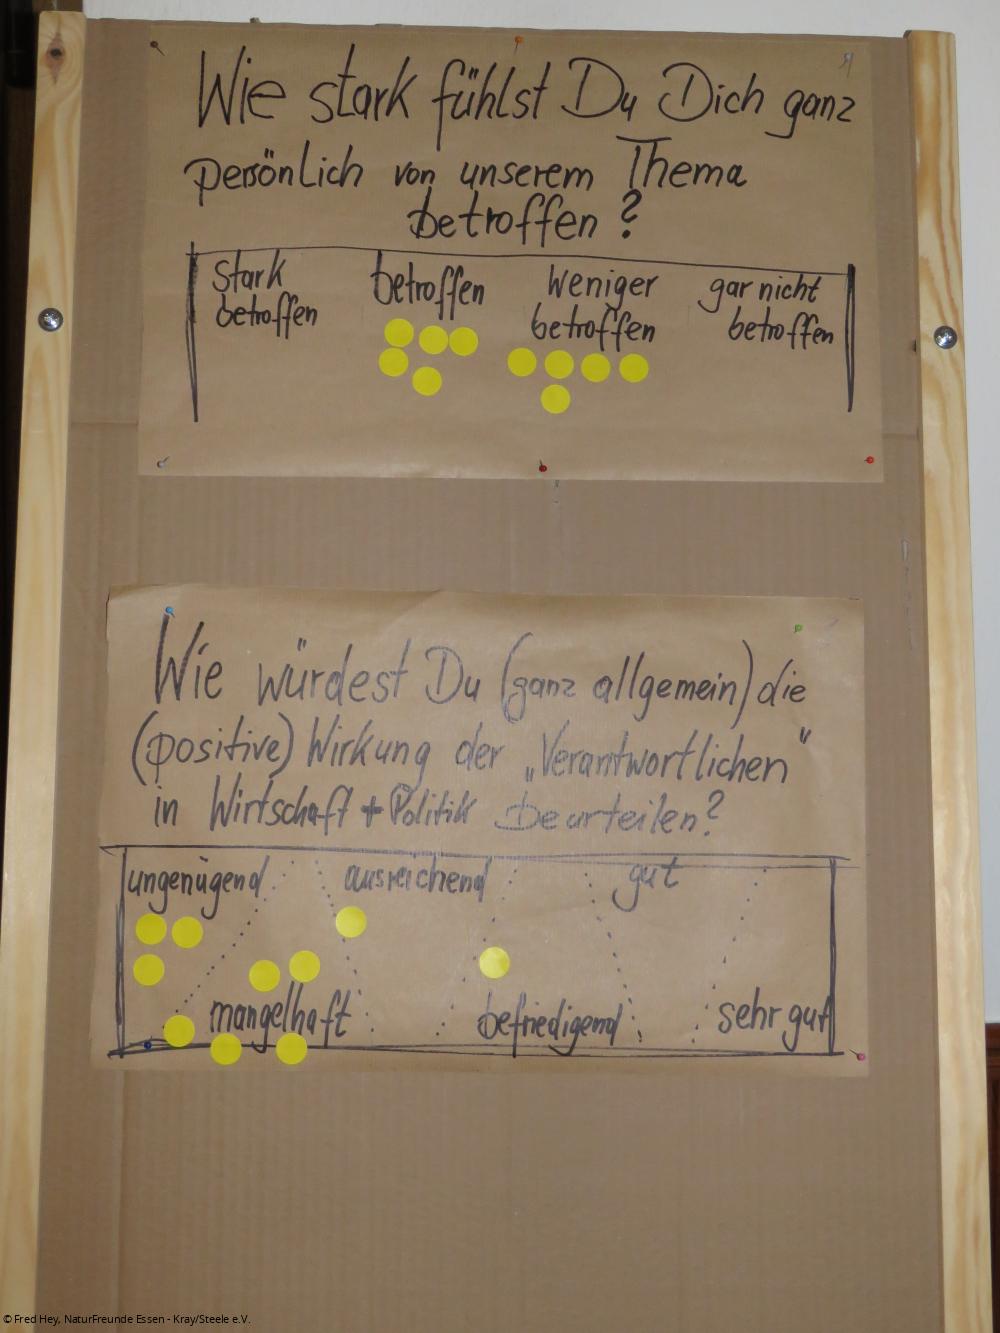 Wie stark fühlst Du Dich ganz
persönlich von unserem Thema
betroffen?
stark betroffen
betroffen
weniger betroffen
gar nicht betroffen
Wie würdest Du (ganz allgemein) die
(positive) Wirkung der „Verantwortlichen"
in Wirtschaft + Politik beurteilen?
ungenügend ausreichend gut
mangelhaft befriedigend sehr gut
© Fred Hey, NaturFreunde Essen - Kray/Steele e.V.